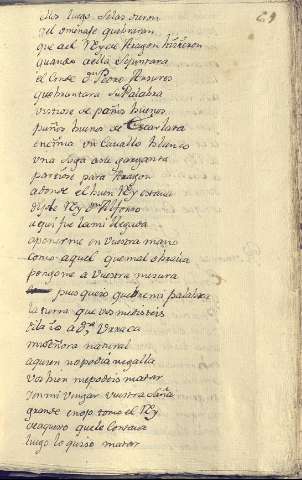 29
ellos luego selas dieron
y el omenaje quebraron
que al Rey de Aragon hizieron
quando
el Conde don Pedro Ansures
quebrantara su Palabra
vistiose de paños buenos
paños buenos de Escarlata
encima vn Cauallo blanco
vna soga a su garganta
partiose para Aragon
adonde el buen Rey estaua
dijole Rey don Alfonso
aqui fue la mi llegada
a ponerme en vuestra mano
como aquel que mal obraua
pongome a vuestra mesura
pues quero quebrente palabra
la tierra que vos me disteis
dila io a Dª Vrraca
mi señora natural
a quien no podia negalla
vos bien me podeis matar
y en mi vengar vuestra saña
grande enojo tomo el Rey
de aquesto que le Contaua
luego lo quiso matar